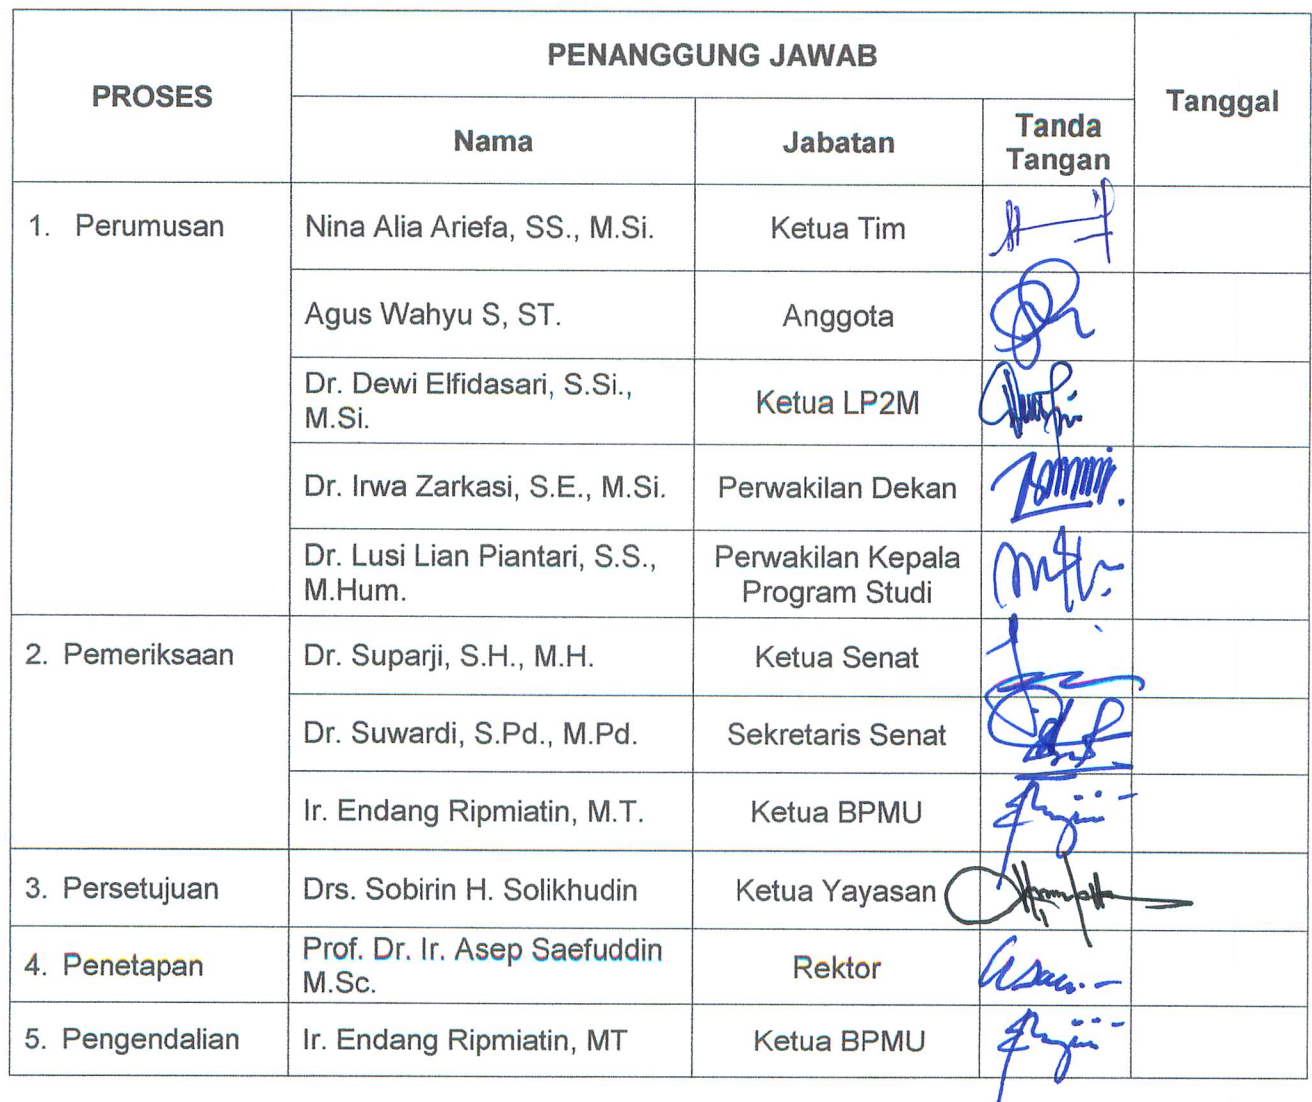 PROSES
PENANGGUNG JAWAB
Tanggal
Nama
Jabatan
Tanda
Tangan
1. Perumusan
Nina Alia Ariefa, SS., M.Si.
Ketua Tim
Agus Wahyu S, ST.
Anggota
Dr. Dewi Elfidasari, S.Si.,
M.Si.
Ketua LP2M
Dr. Irwa Zarkasi, S.E., M.Si.
Perwakilan Dekan
Dr. Lusi Lian Piantari, S.S.,
M.Hum.
Perwakilan Kepala
Program Studi
2. Pemeriksaan
Dr. Suparji, S.H., M.H.
Ketua Senat
Dr. Suwardi, S.Pd., M.Pd.
Sekretaris Senat
Ir. Endang Ripmiatin, M.T.
Ketua BPMU
3. Persetujuan
Drs. Sobirin H. Solikhudin
Ketua Yayasan
4. Penetapan
Prof. Dr. Ir. Asep Saefuddin
M.Sc.
Rektor
5. Pengendalian
Ir. Endang Ripmiatin, MT
Ketua BPMU